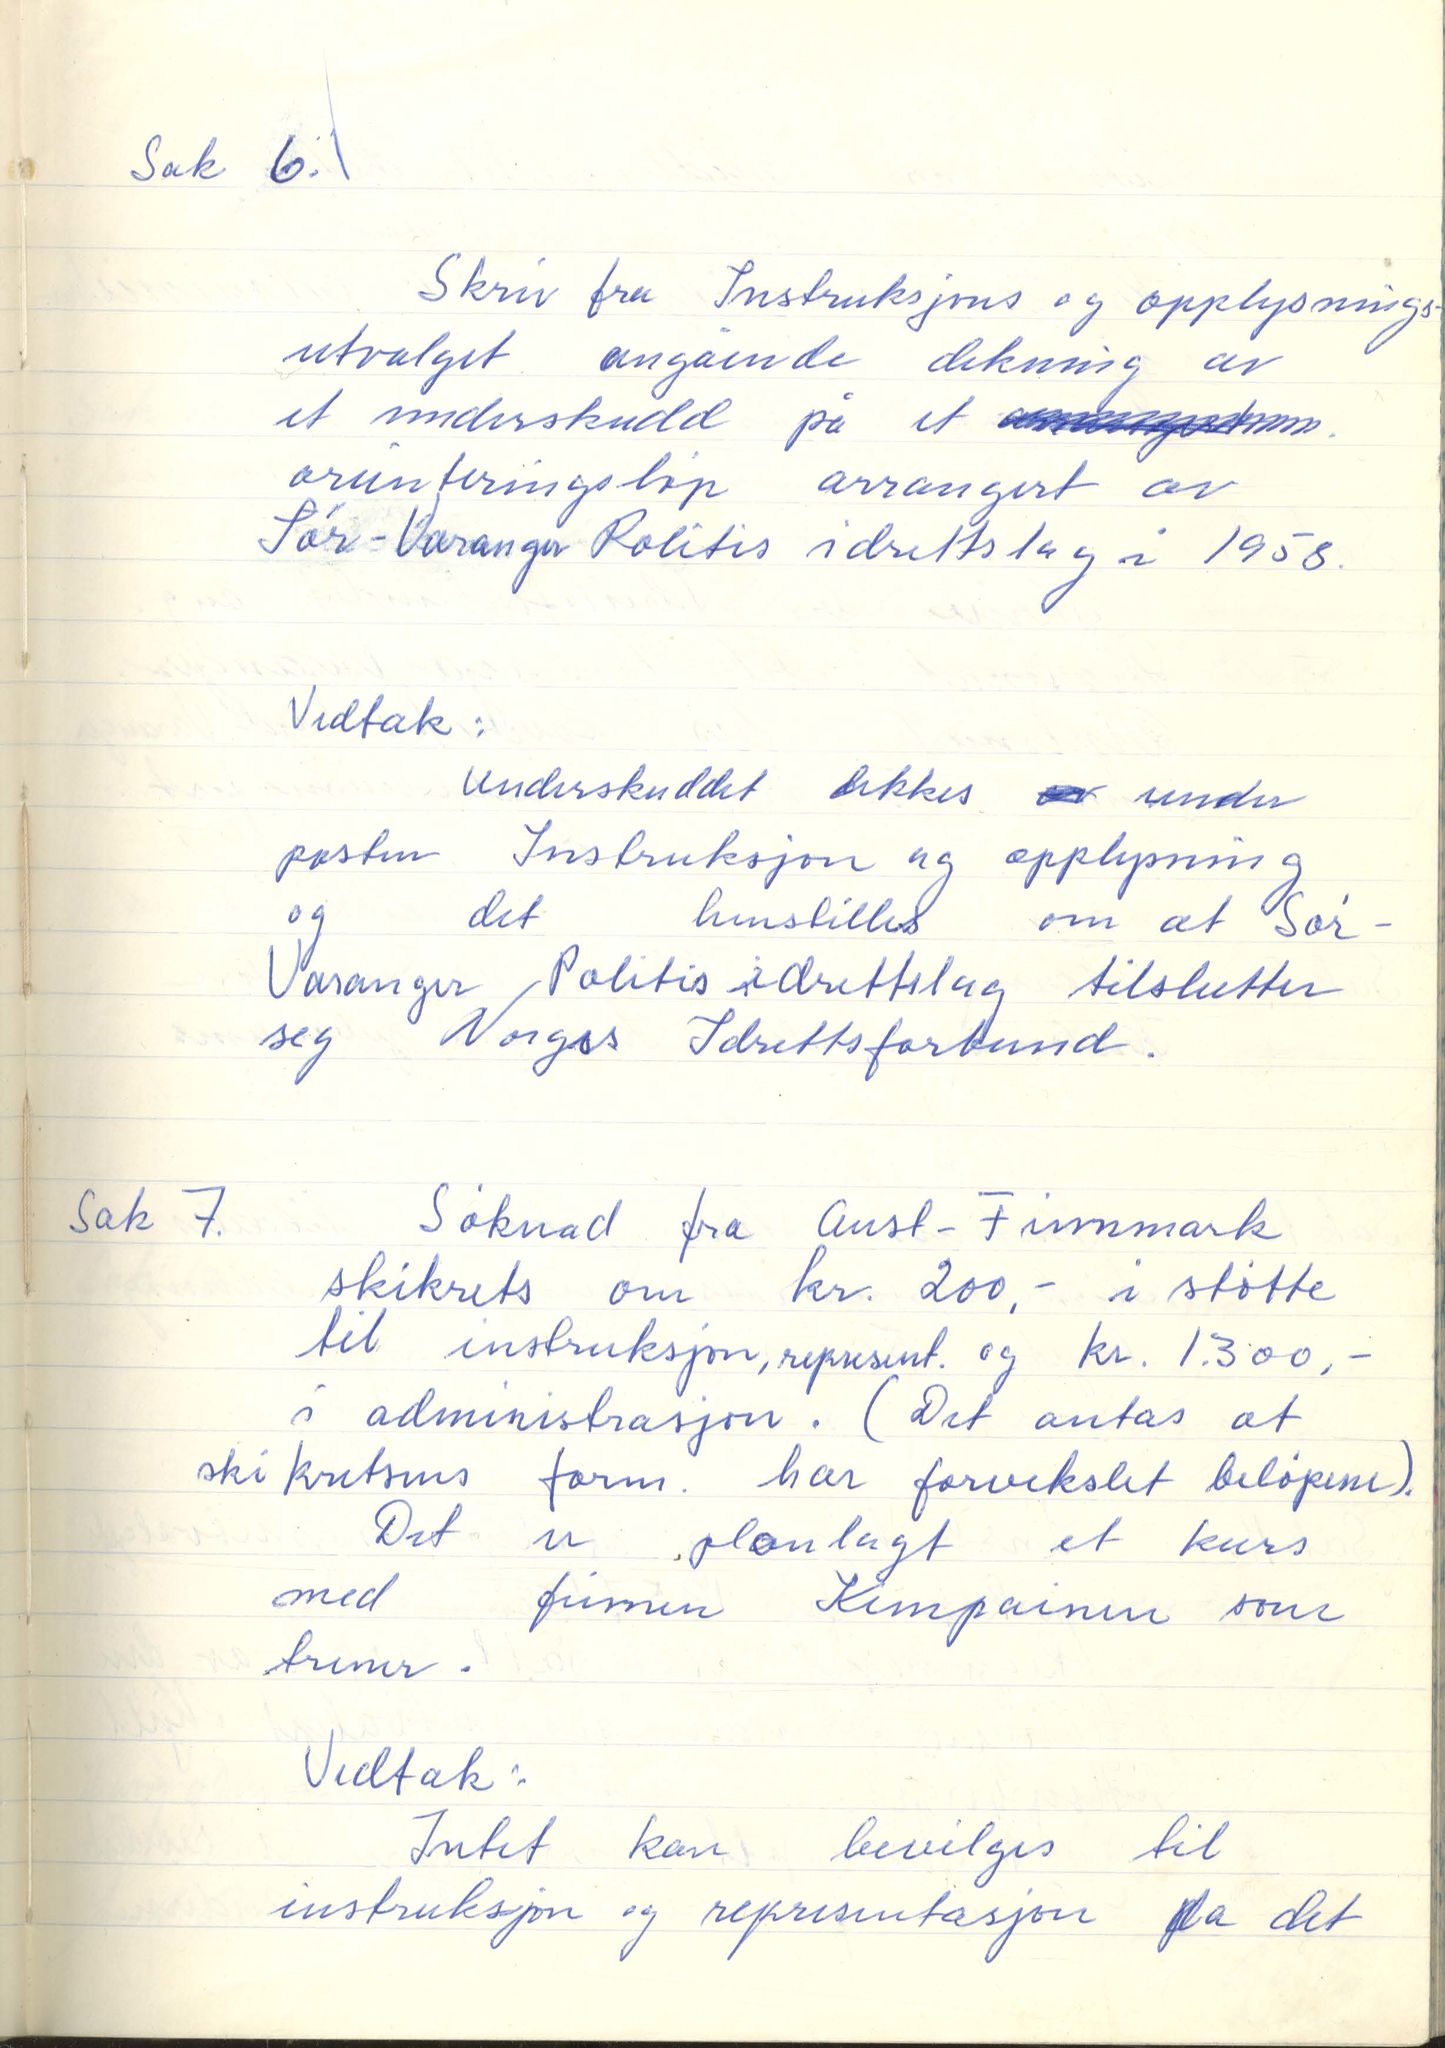 Sak 6.
Skriv fra Instruksjons og opplysnings-
utvalget angående dekning av
et underskudd på et
orienteringsløp arrangert av
Sør-Varanger Politis idrettslag i 1958.
Vedtak:
Underskuddet dekkes under
posten Instruksjon og opplysning
og det henstilles om at Sør-
Varanger Politis idrettslag tilslutter
seg Norges Idrettsforbund.
Sak 7. Søknad fra Aust-Finnmark
skikrets om kr. 200,- i støtte
til instruksjon, represent. og kr. 1.300,-
i administrasjon. (Det antas at
skikretsens form. har forvekslet beløpene).
Det er planlagt et kurs
med finnen Kempainen som
trener.
Vedtak:
Intet kan bevilges til
instruksjon og representasjon da det